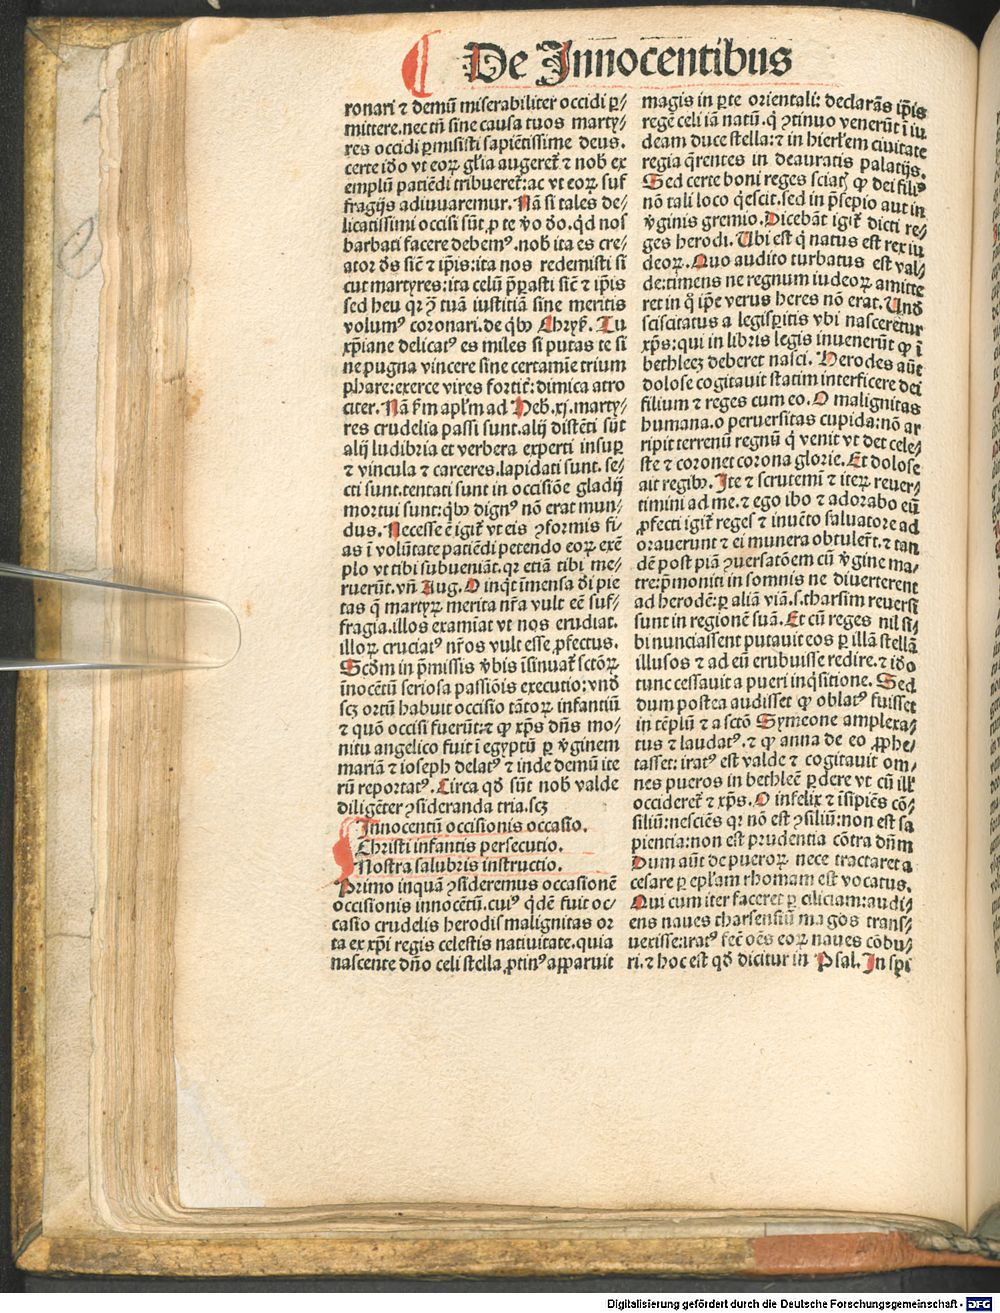 ¶ De Innocentibus
ronari ⁊ demū miserabiliter occidi ꝑ⸗
mittere. nec tñ sine causa tuos marty⸗
res occidi ꝑmisisti sapiētissime deus.
certe iđo vt eoꝝ gl̄ia augeret᷑ ⁊ nob̄ ex
emplū patiēdi tribueret᷑: ac vt eoꝝ suf
fragijs adiuuaremur. Nā si tales de⸗
licatissimi occisi sūt ꝓ te v̄o đo. qđ nos
barbati facere debemꝰ. nob̄ ita es cre⸗
ator đs sic̄ ⁊ ip̄is: ita nos redemisti si
cut martyres: ita celū p̄parasti sic̄ ⁊ ip̄is
sed heu qꝛ ꝯ̄ tuā iustitiā sine meritis
volumꝰ coronari. de qbꝫ Chryß. Tu
xp̄iane delicatꝰ es miles si putas te si
ne pugna vincere sine certamīe trium
phare: exerce vires fortit᷑: dimica atro
citer. Nā ẜm apl̄m ad Heb̄. xj. marty⸗
res crudelia passi sunt. alij distēti sūt
alij ludibria et verbera experti insuꝑ
⁊ vincula ⁊ carceres. lapidati sunt. se⸗
cti sunt. tentati sunt in occisiōe gladij
mortui sunt: qbꝫ dignꝰ nō erat mun⸗
dus. Necesse ē igit᷑ vt eis ꝯformis fi⸗
as ī volūtate patiēdi petendo eoꝝ exē
plo vt tibi subueniāt. qꝛ etiā tibi me⸗
ruerūt. vn̄ Aug. O inqt īmensa đi pie
tas q̄ martyꝝ merita nr̄a vult eē suf⸗
fragia. illos examīat vt nos erudiat.
illoꝝ cruciatꝰ nr̄os vult esse ꝓfectus.
Scđm in p̄missis v̄bis īsinuat᷑ sctōꝝ
īnocētū seriosa passiōis executio: vnđ
scꝫ ortū habuit occisio tātoꝝ infantiū
⁊ quō occisi fuerūt: ⁊ ꝙ xp̄s dn̄s mo⸗
nitu angelico fuit ī egyptū ꝑ v̄ginem
mariā ⁊ ioseph delatꝰ ⁊ inde demū ite
rū reportatꝰ. Circa qđ sūt nob̄ valde
diligēter ꝯsideranda tria. scꝫ
Innocentū occisionis occasio.
Christi infantis persecutio.
Nostra salubris instructio.
Primo inquā ꝯsideremus occasionē
occisionis innocētū. cuiꝰ qdē fuit oc⸗
casio crudelis herodis malignitas or
ta ex xp̄i regis celestis natiuitate. quia
nascente dn̄o celi stella ꝓtinꝰ apparuit
magis in ꝑte orientali: declarās ip̄is
regē celi iā natū. q̄ ꝯtinuo venerūt ī iu
deam duce stella: ⁊ in hierl̄em ciuitate
regia q̄rentes in deauratis palatijs.
Sed certe boni reges sciat᷑ ꝙ dei filiꝰ
nō tali loco qescit. sed in p̄sepio aut in
v̄ginis gremio. Dicebāt igit᷑ dicti re⸗
ges herodi. Ubi est q̄ natus est rex iu
deoꝝ. Quo audito turbatus est val⸗
de: timens ne regnum iudeoꝝ amitte
ret in q̄ ip̄e verus heres nō erat. Unđ
sciscitatus a legisꝑitis vbi nasceretur
xp̄s: qui in libris legis inuenerūt ꝙ ī
bethleeꝫ deberet nasci. Herodes aūt
dolose cogitauit statim interficere dei
filium ⁊ reges cum eo. O malignitas
humana. o peruersitas cupida: nō ar
ripit terrenū regnū q̄ venit vt det cele⸗
ste ⁊ coronet corona glorie. Et dolose
ait regibꝫ. Ite ⁊ scrutemī ⁊ iteꝝ reuer⸗
timini ad me. ⁊ ego ibo ⁊ adorabo eū
ꝓfecti igit᷑ reges ⁊ inuēto saluatore ad
orauerunt ⁊ ei munera obtulēt᷑. ⁊ tan
dē post piā ꝯuersatōem cū v̄gine ma⸗
tre: p̄moniti in somnis ne diuerterent
ad herodē: ꝑ aliā viā. s. tharsim reuersi
sunt in regionē suā. Et cū reges nil si⸗
bi nunciassent putauit eos ꝑ illā stellā
illusos ⁊ ad eū erubuisse redire. ⁊ iđo
tunc cessauit a pueri inq̄sitione. Sed
dum postea audisset ꝙ oblatꝰ fuisset
in tēplū ⁊ a sctō Symeone amplexa⸗
tus ⁊ laudatꝰ. ⁊ ꝙ anna de eo ꝓphe⸗
tasset: iratꝰ est valde ⁊ cogitauit om⸗
nes pueros in bethleē ꝑdere vt cū ill̄
occideret᷑ ⁊ xp̄s. O infelix ⁊ īsipiēs cō⸗
siliū: nesciēs qꝛ nō est ꝯsiliū: non est sa
pientia: non est prudentia cōtra dn̄m
Dum aūt de pueroꝝ nece tractaret a
cesare ꝑ epl̄am rhomam est vocatus.
Qui cum iter faceret ꝑ ciliciam: audi⸗
ens naues tharsensiū magos trans⸗
uexisse: iratꝰ fec̄ oēs eoꝝ naues cōbu⸗
ri. ⁊ hoc est qđ dicitur in Psal. In sp̄i
Digitalisierung gefördert durch die Deutsche Forschungsgemeinschaft - DFG